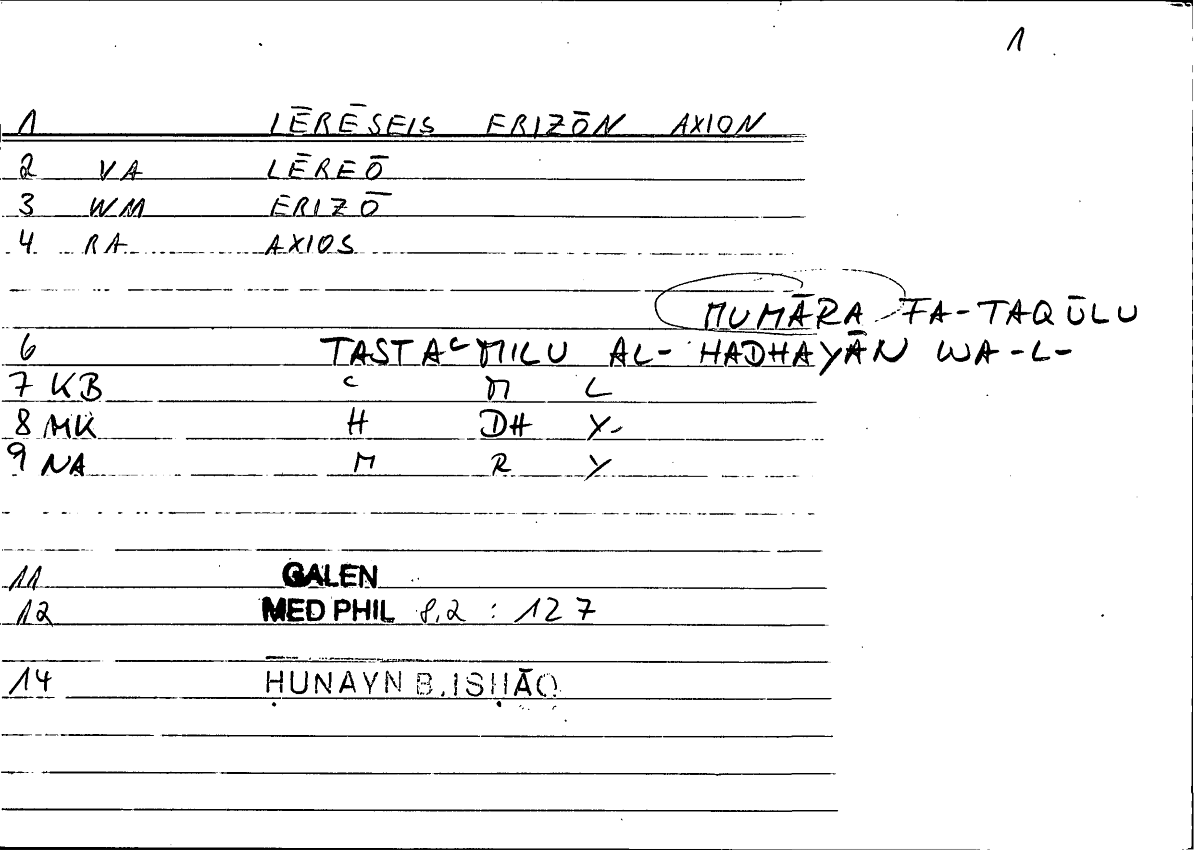 1
1 LĒRĒSEIS ERIZŌN AXION
2 VA LĒREŌ
3 WM ERIZŌ
4 RA AXIOS
MUMĀRA FA-TAQŪLU
6 TASTAᶜMILU AL-HADHAYĀN WA-L-
7 KB ᶜ M L
8 MK H DH Y
9 NA M R Y
11 GALEN
12 MED PHIL 8,2 : 127
14 ḤUNAYN B. ISḤĀQ